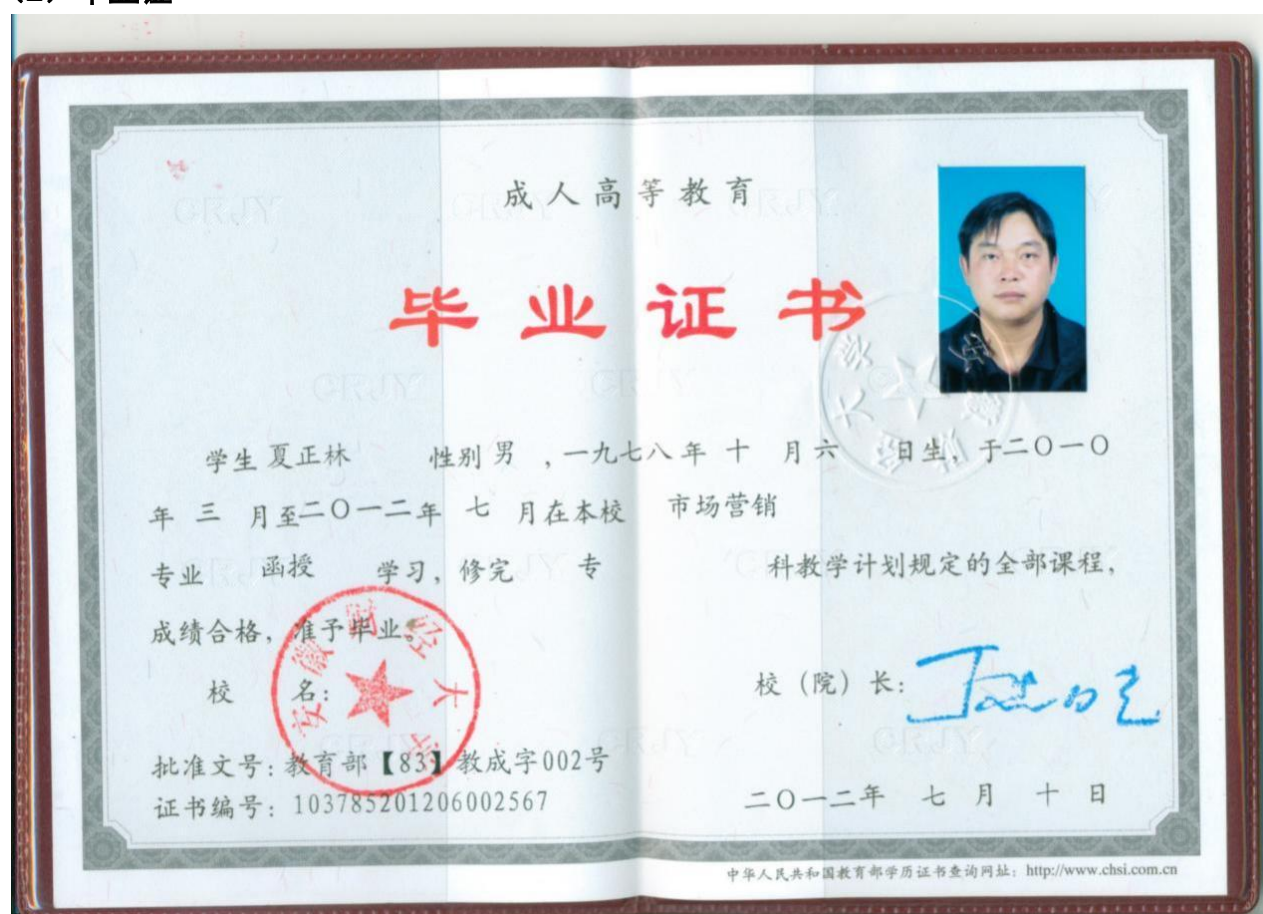 成人高等教育
毕业证书
学生 夏正林 性别 男 ，一九七八年 十 月 六 日生，于二〇一〇
年 三 月至二〇一二年 七 月在本校 市场营销
专业 函授 学习，修完 专 科教学计划规定的全部课程，
成绩合格，准予毕业。
校 名：
安徽财经大学
校（院）长：
批准文号：教育部【83】教成字002号
证书编号：103785201206002567
二〇一二年 七 月 十 日
中华人民共和国教育部学历证书查询网址：http://www.chsi.com.cn